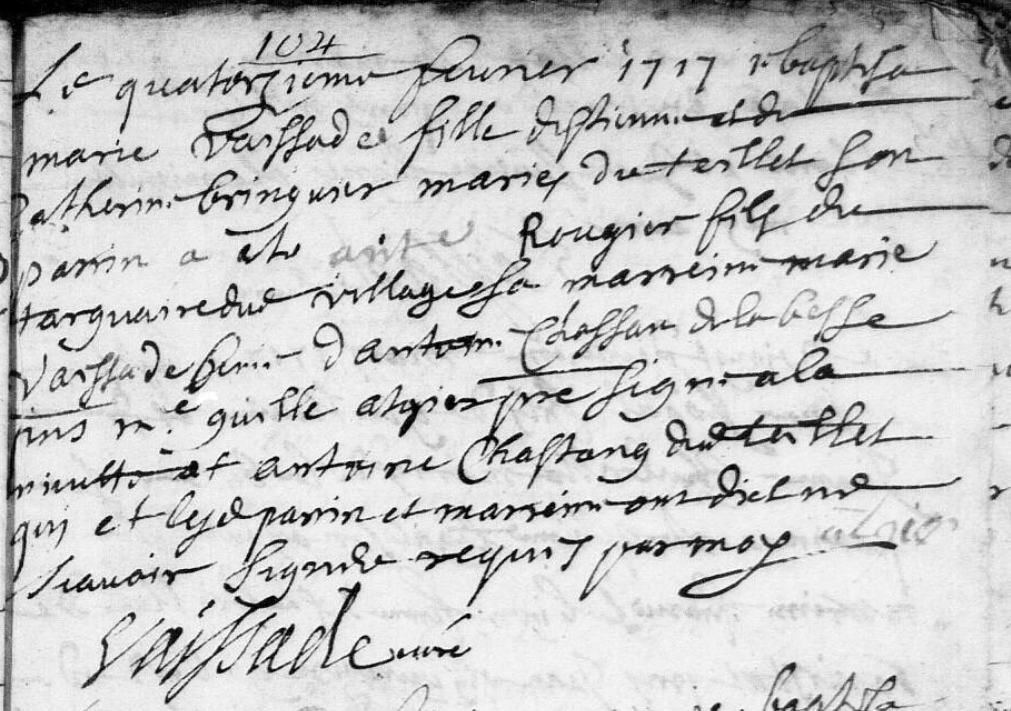 104
Le quatorzieme fevrier 1717 baptisa
marie Vaissade fille destienne et de
catherine bringuier maries du teillet son
parrin a ete Rougier fils du
dud village sa marreine marie
Vaissade d'antoine Chassan de la besse
me guille atgier pre signe a la
minutte et antoine Chastang dud teillet
qui et lesd parrin et marreine ont dict ne
scavoir signer de requis par moy
Vaissade curé
baptisa